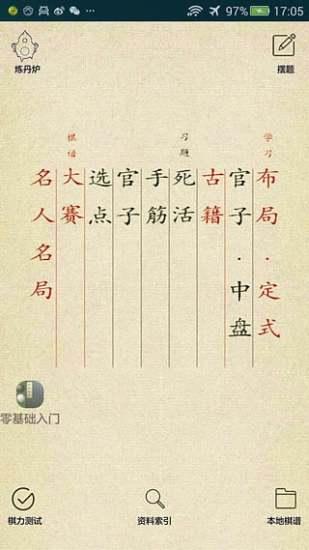 97% 17:05
炼丹炉
摆题
学习
布局·定式
官子·中盘
古籍
习题
死活
手筋
官子
选点
棋谱
大赛
名人名局
零基础入门
棋力测试
资料索引
本地棋谱